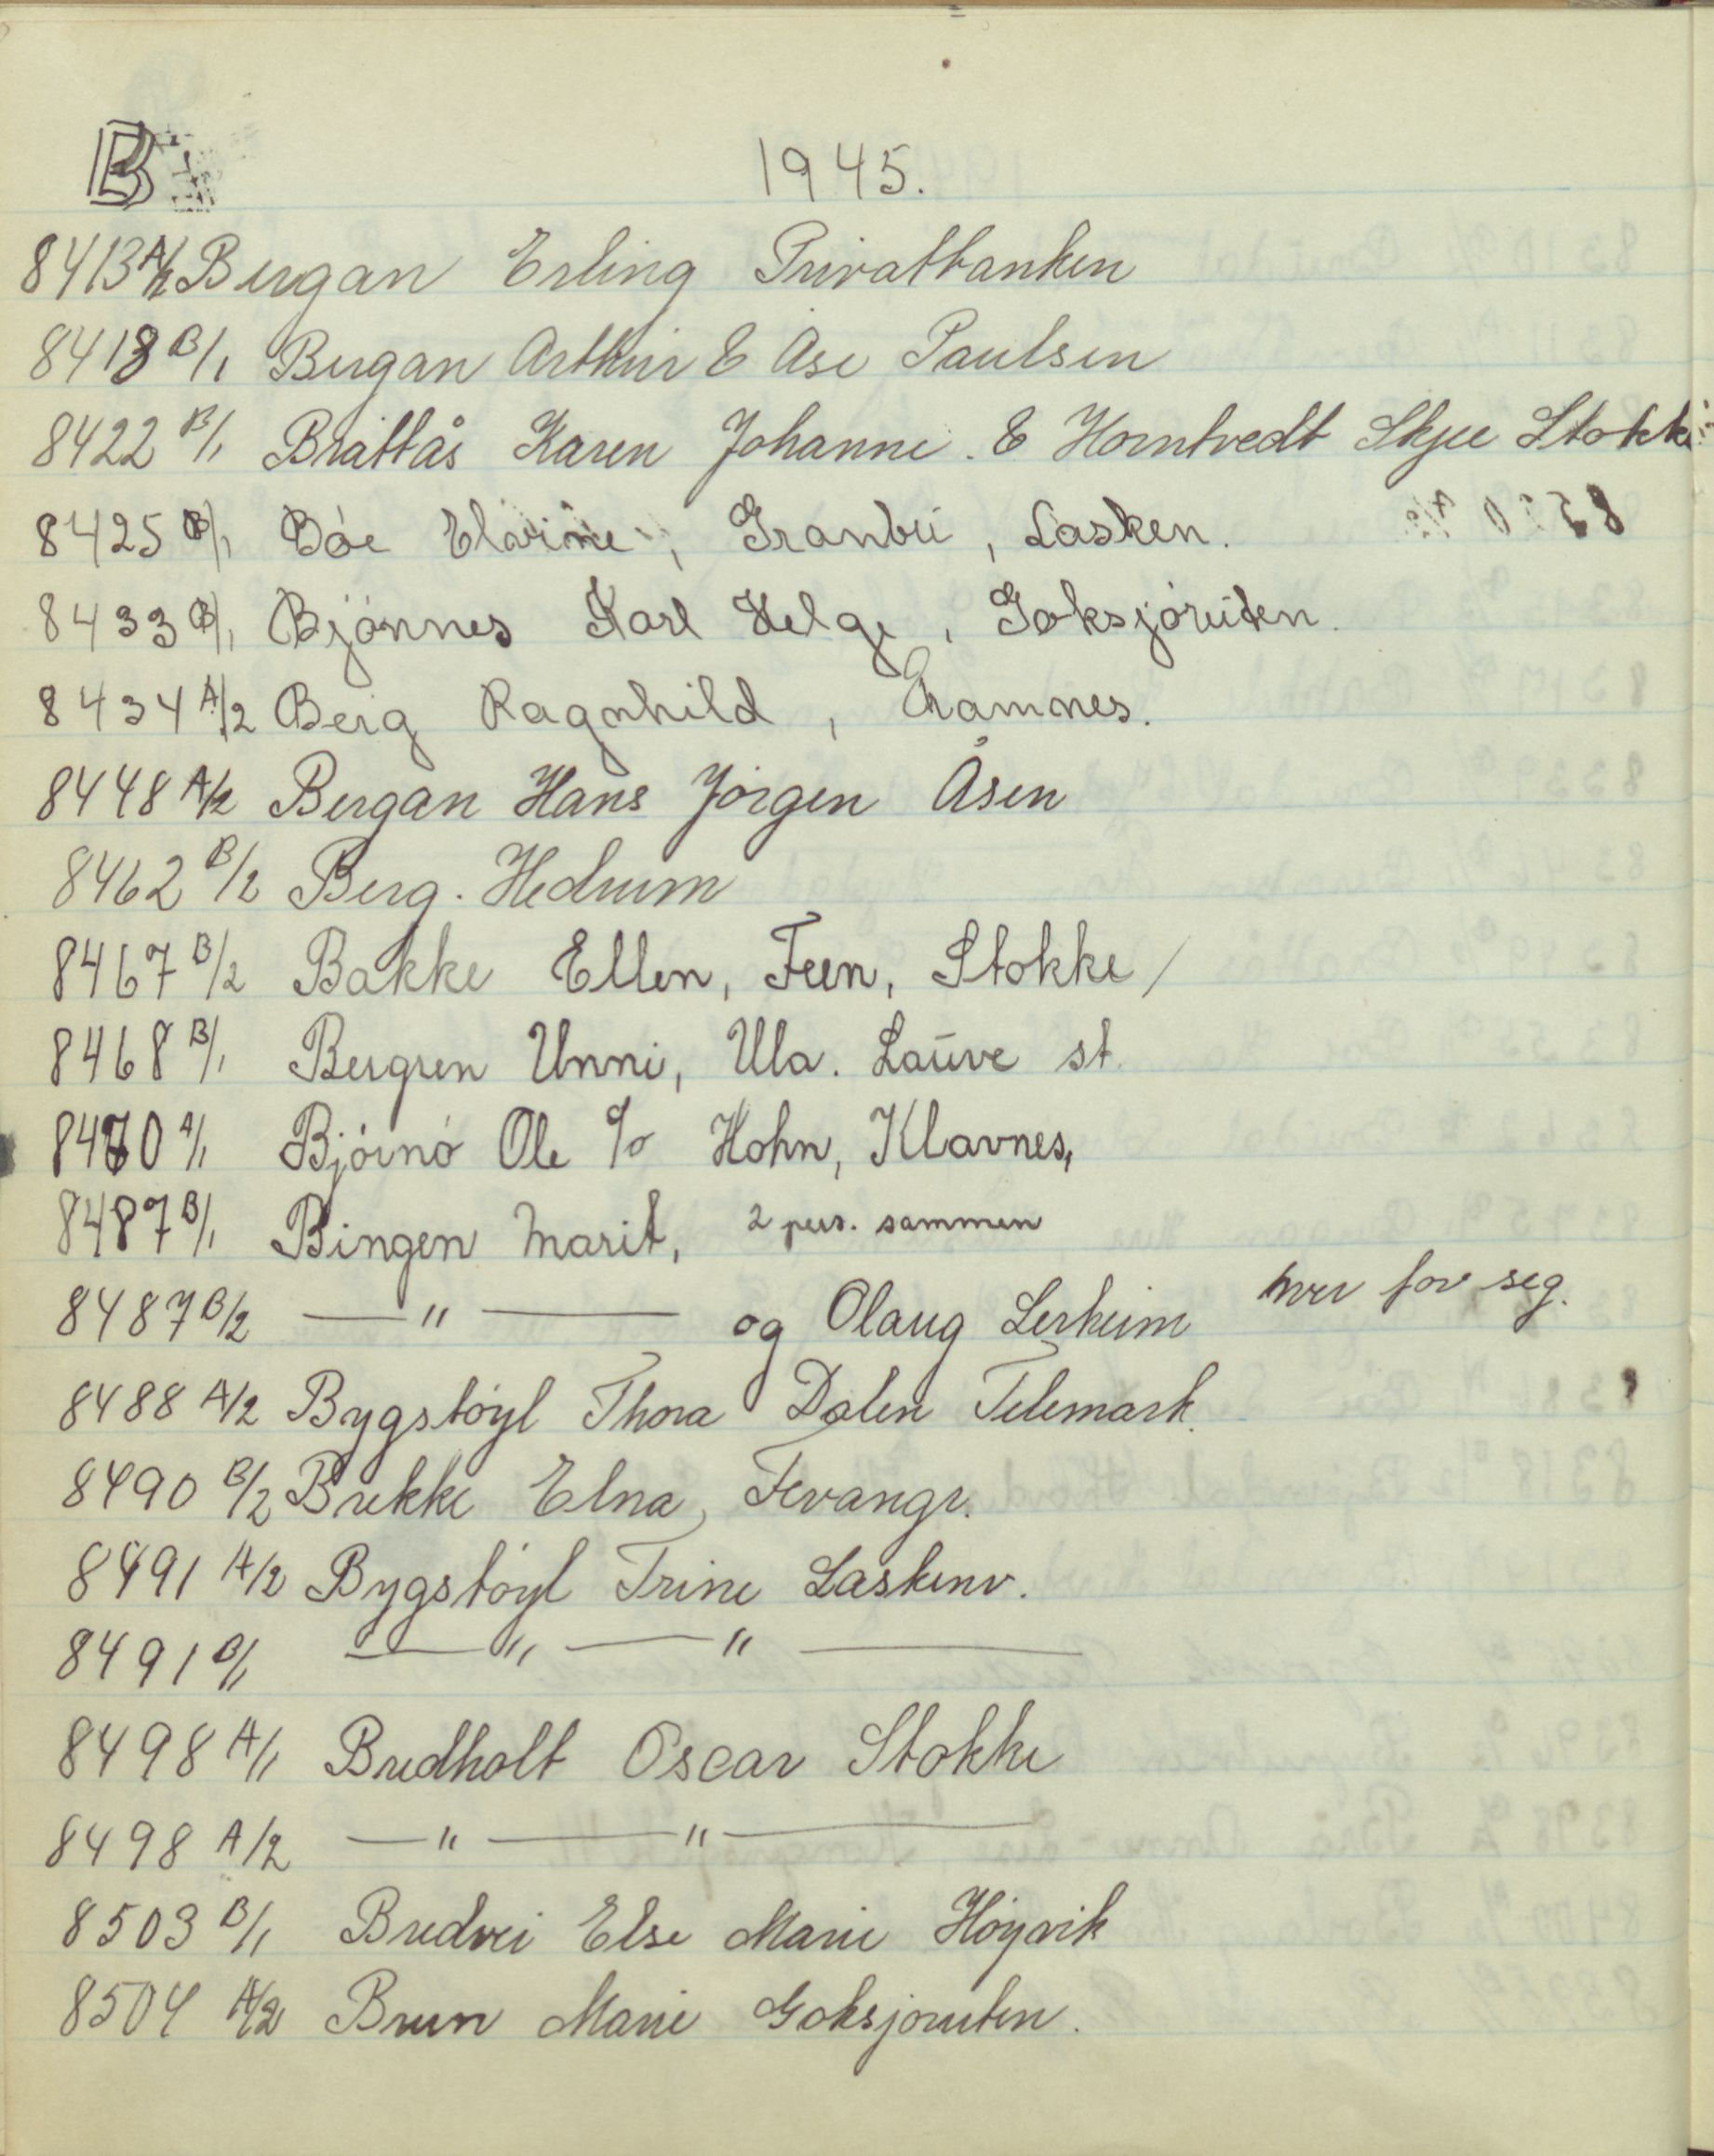 B
1945.
8413 A/2 Bergan Erling Privatbanken
8418 B/1 Bergan Arthur & Åse Paulsen
8422 B/1 Brattås Karen Johanne. & Horntvedt Skjee Stokke
8425 B/1 Bóe Elvine, Granbu, Lasken.
8433 B/1 Bjónnes Karl Helge, Goksjóruten.
8434 A/2 Berg Ragnhild, Ramnes.
8448 A/2 Bergan Hans Jórgen Åsen
8462 B/2 Berg. Hedrum
8467 B/2 Bakke Ellen, Feen, Stokke/
8468 B/1 Bergren Unni, Ula. Lauve st.
8470 A/1 Bjórnó Ole c/o Hohn, Klavnes,
8487 B/1 Bingen Marit, 2 pers. sammen
8487 B/2 — " — og Olaug Lerheim hver for seg.
8488 A/2 Bygstóyl Thora Dalen Telemark.
8490 B/2 Brekke Elna, Fevangr.
8491 A/2 Bygstóyl Trine Laskenv.
8491 B/1 — " — " —
8498 A/1 Bredholt Oscar Stokke
8498 A/2 — " — " —
8503 B/1 Bredvei Else Marie Hóyvik
8504 A/2 Brun Marie Goksjoruten.